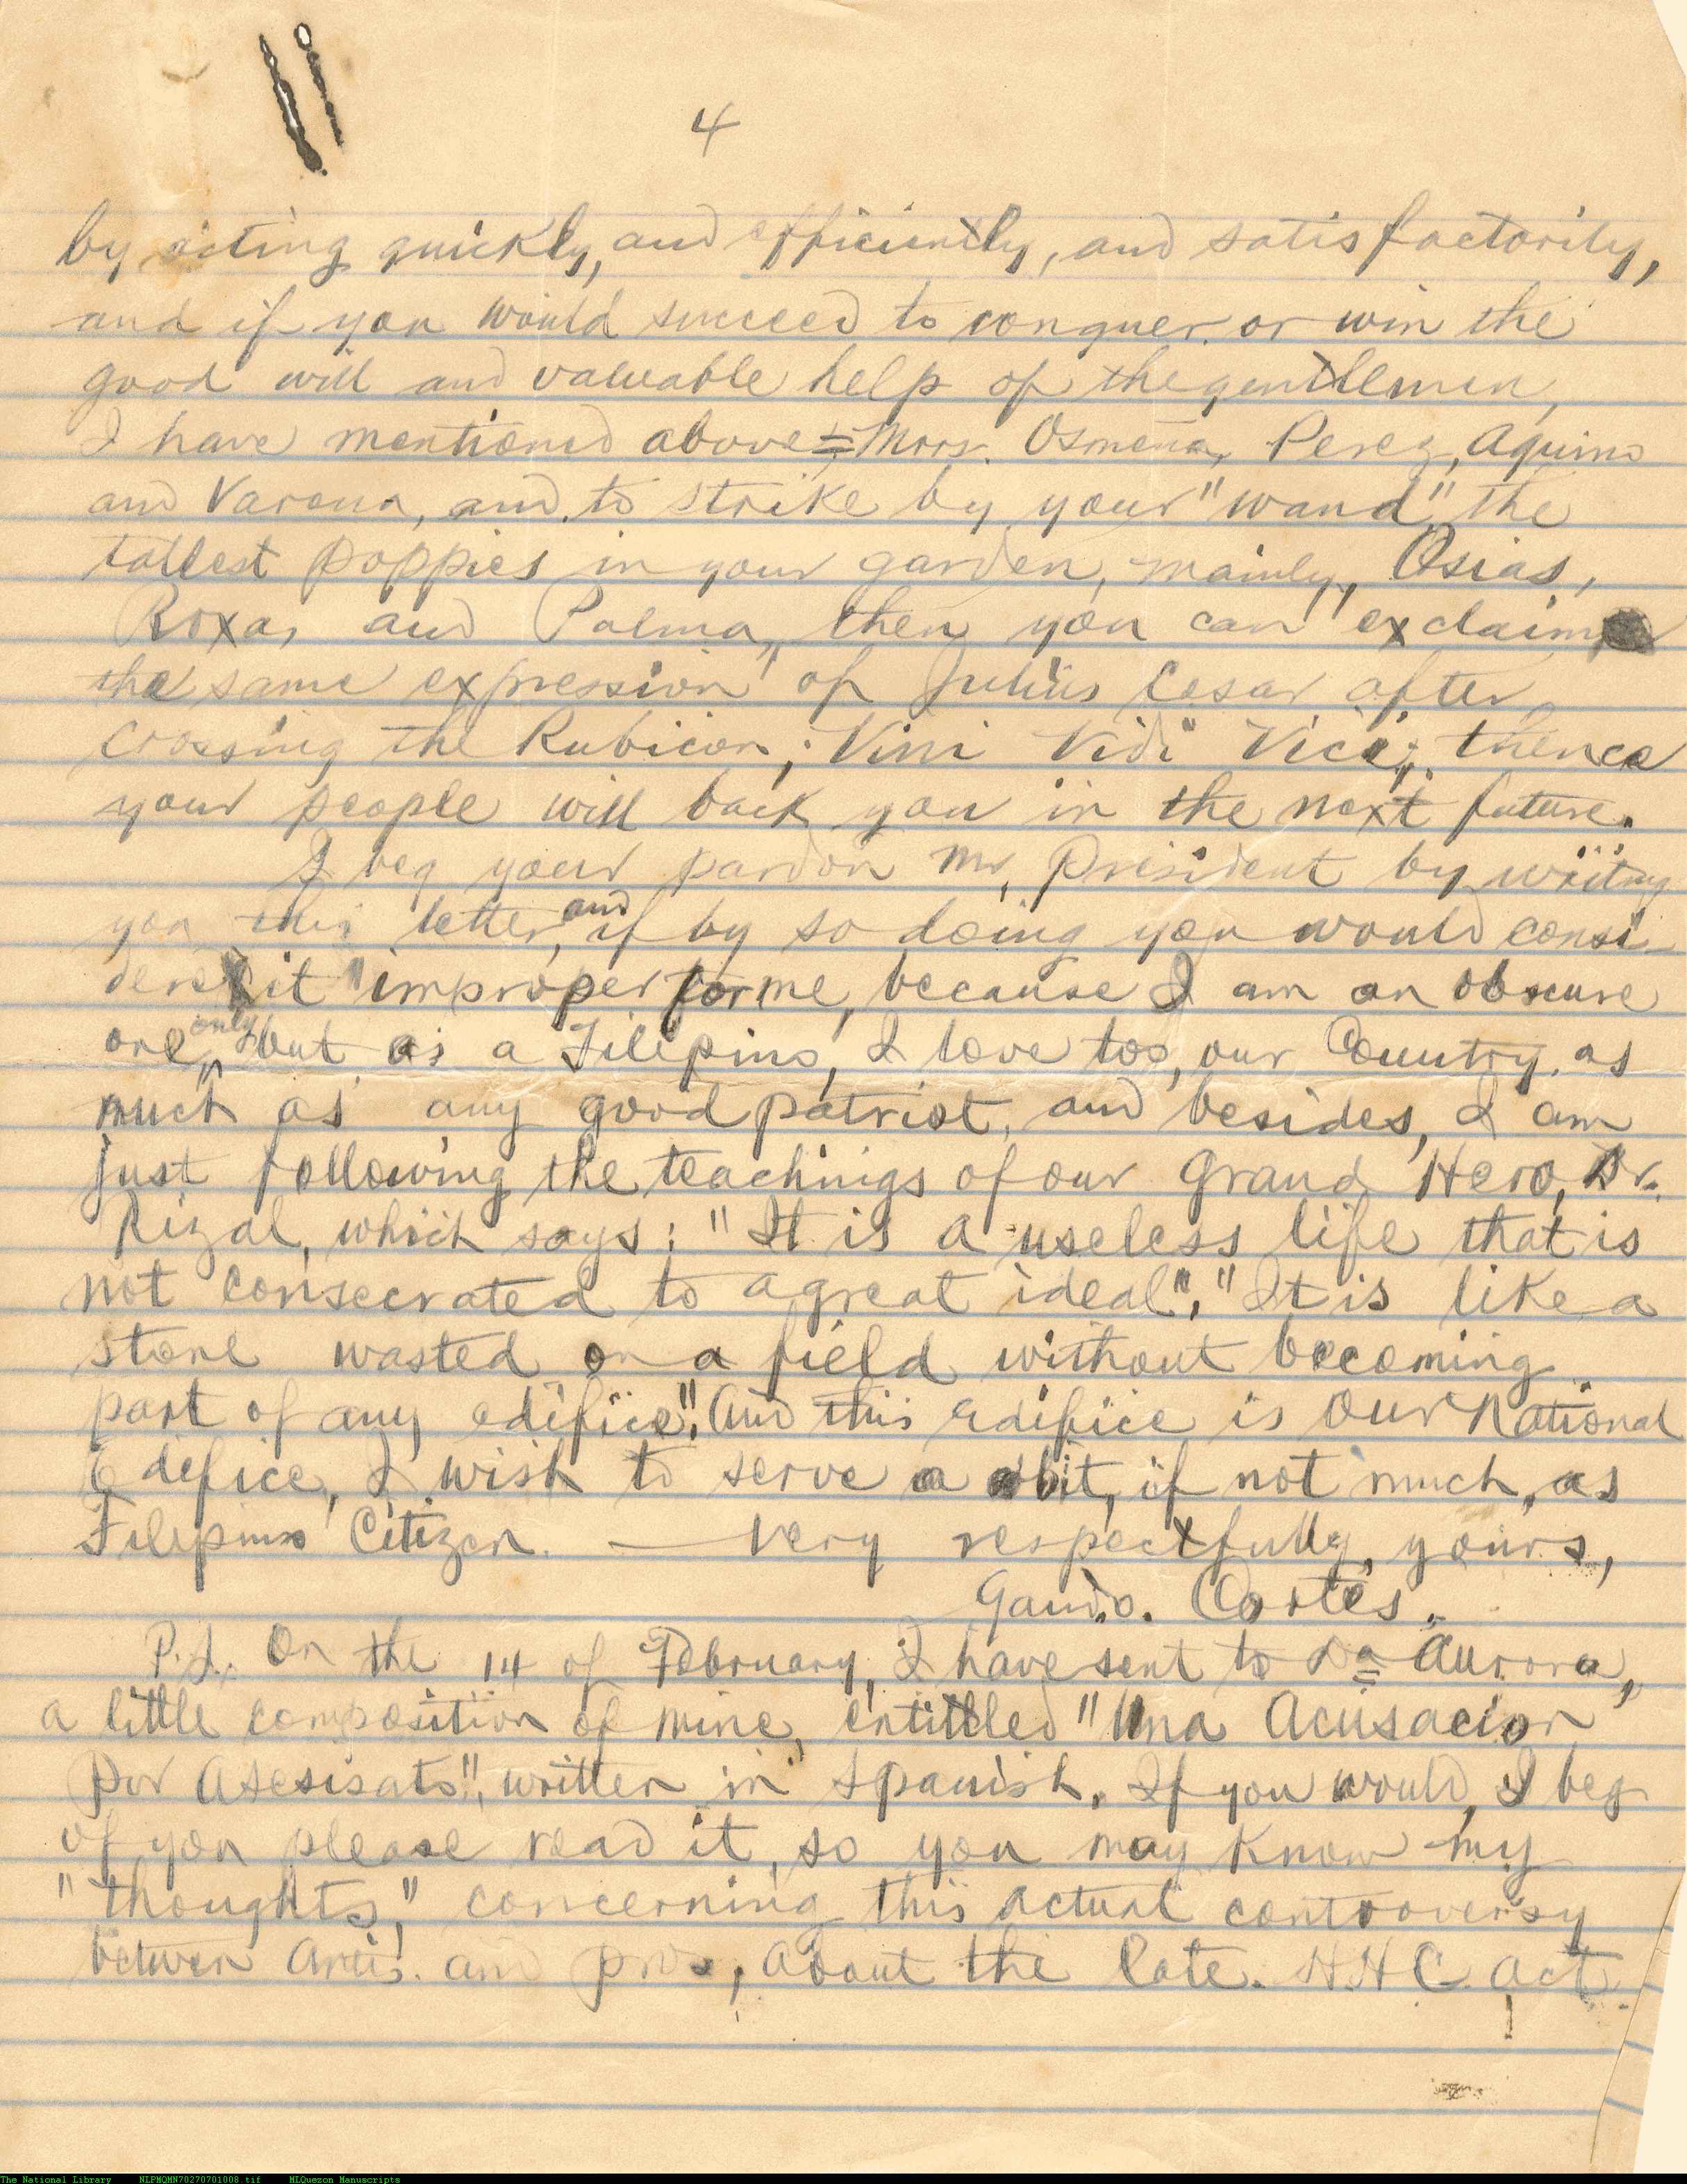 4
by acting quickly, and efficiently, and satisfactorily,
and if you would succeed to conquer or win the
good will and valuable help of the gentlemen,
I have mentioned above = Mrrs. Osmeña, Perez, Aquino
and Varona, and to strike by your "wand" the
tallest poppies in your garden, mainly, Osias,
Roxas and Palma, then you can exclaim
the same expression of Julius Cesar after
crossing the Rubicon; Vini Vidi Vici; thence
your people will back you in the next future.
I beg your pardon Mr. President by writing
you this letter, and if by so doing you would consi-
der it improper for me, because I am an obscure
one only, but as a Filipino, I love too, our Country, as
much as any good patriot, and besides, I am
just following the teachings of our Grand Hero, Dr.
Rizal, which says: "It is a useless life that is
not consecrated to a great ideal". "It is like a
stone wasted on a field without becoming
part of any edifice". And this edifice is Our National
Edifice, I wish to serve a bit, if not much, as
Filipino Citizen. — Very respectfully, yours,
Gaudo. Cortes.
P.S. On the 14 of February, I have sent to Da Aurora,
a little composition of mine, entitled "Una Acusacion
por Asesisato", written in Spanish. If you would, I beg
of you please read it, so you may know my
"thoughts," concerning this actual controversy
between Antis. and pros, about the late. H.H.C. Act.
The National Library NLPMQMN70270701008.tif MLQuezon Manuscripts